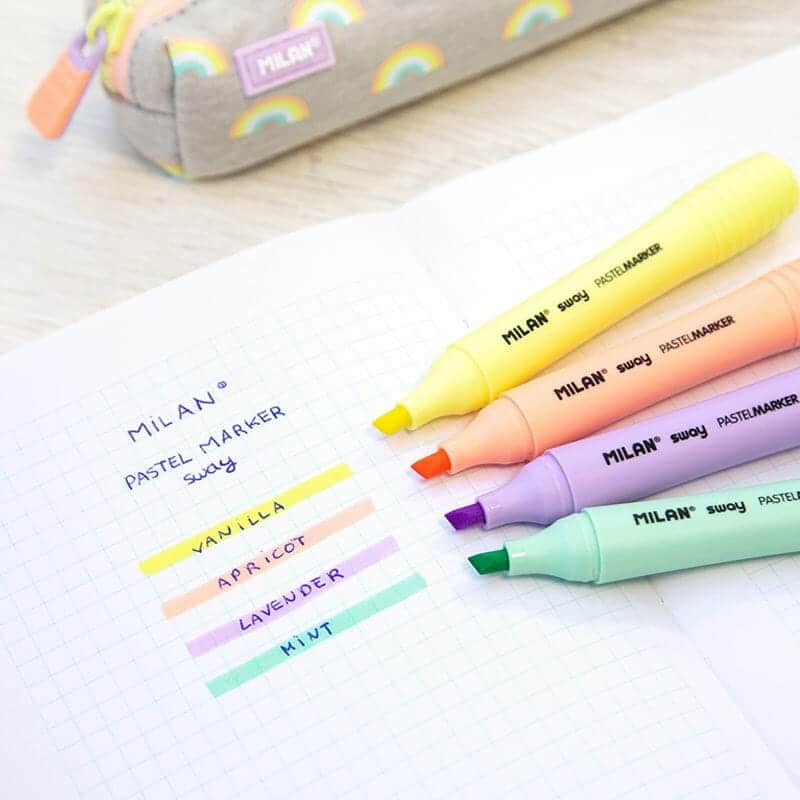 MILAN®
MILAN® sway PASTELMARKER
MILAN® sway PASTELMARKER
MILAN® sway PASTELMARKER
MILAN® sway PASTELM
MiLAN®
PASTEL MARKER
sway
VANILLA
APRICOT
LAVENDER
MiNT